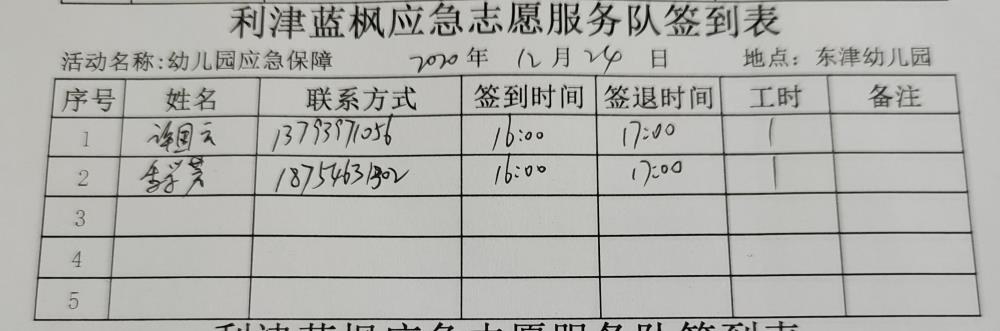 利津蓝枫应急志愿服务队签到表
活动名称:幼儿园应急保障 2020年 12月24日 地点: 东津幼儿园
序号 姓名 联系方式 签到时间 签退时间 工时 备注
1 许国云 13793971056 16:00 17:00 1
2 李学芳 18754631302 16:00 17:00 1
3
4
5
利津蓝枫应急志愿服务队签到表